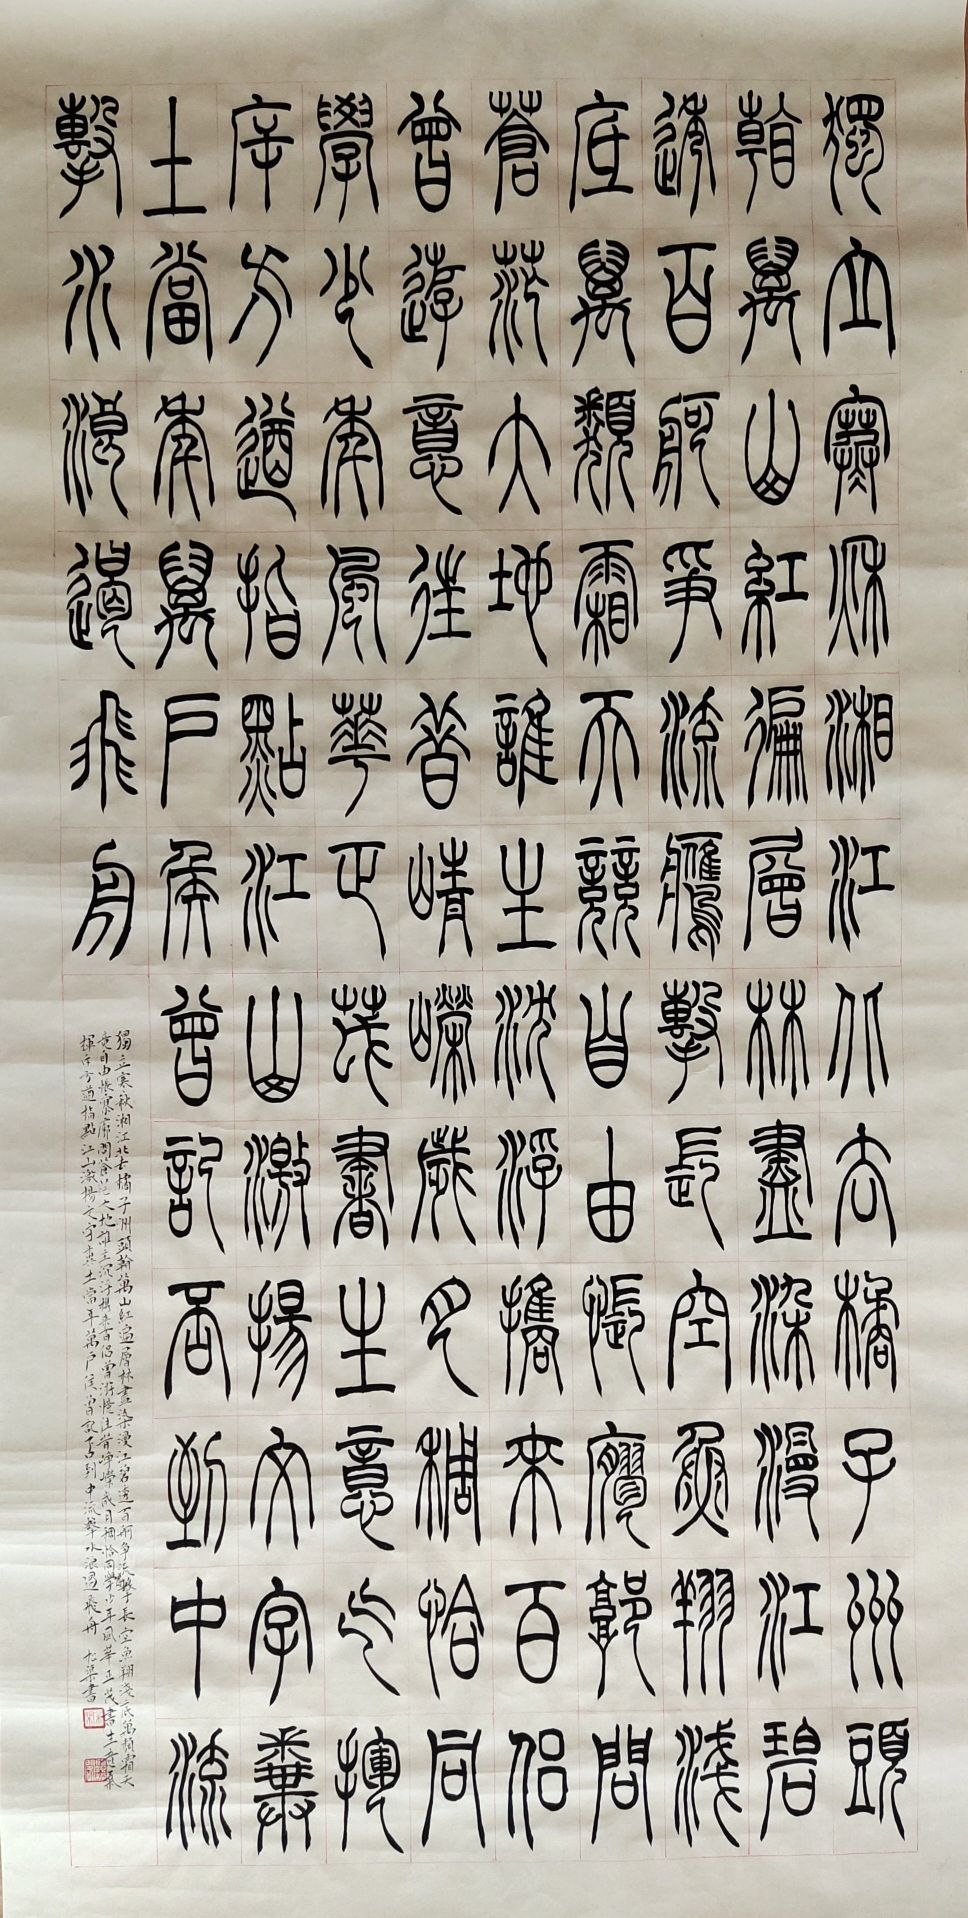 獨立寒秋湘江北去橘子洲頭
看萬山紅遍層林盡染漫江碧
透百舸爭流鷹擊長空魚翔淺
底萬類霜天競自由悵寥廓問
蒼茫大地誰主沈浮攜來百侶
曾遊意往昔崢嶸歲月稠恰同
學少年風華正茂書生意气揮
斥方遒指點江山激揚文字糞
土當年萬戶侯曾記否到中流
擊水浪遏飛舟
獨立寒秋湘江北去橘子洲頭看萬山紅遍層林盡染漫江碧透百舸爭流長空魚翔淺底萬類霜天
競自由悵寥廓問蒼茫大地誰主沉浮攜來百侶曾游憶往昔崢嶸歲月稠恰同學少年風華正茂書生意氣
揮斥方遒指點江山激揚文字糞土當年萬戶侯曾記否到中流擊水浪遏飛舟 書